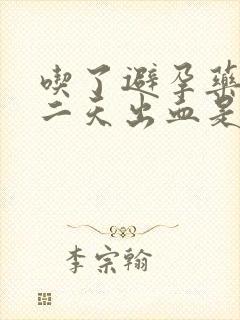 喫了避孕藥
二天出血是
李宗翰